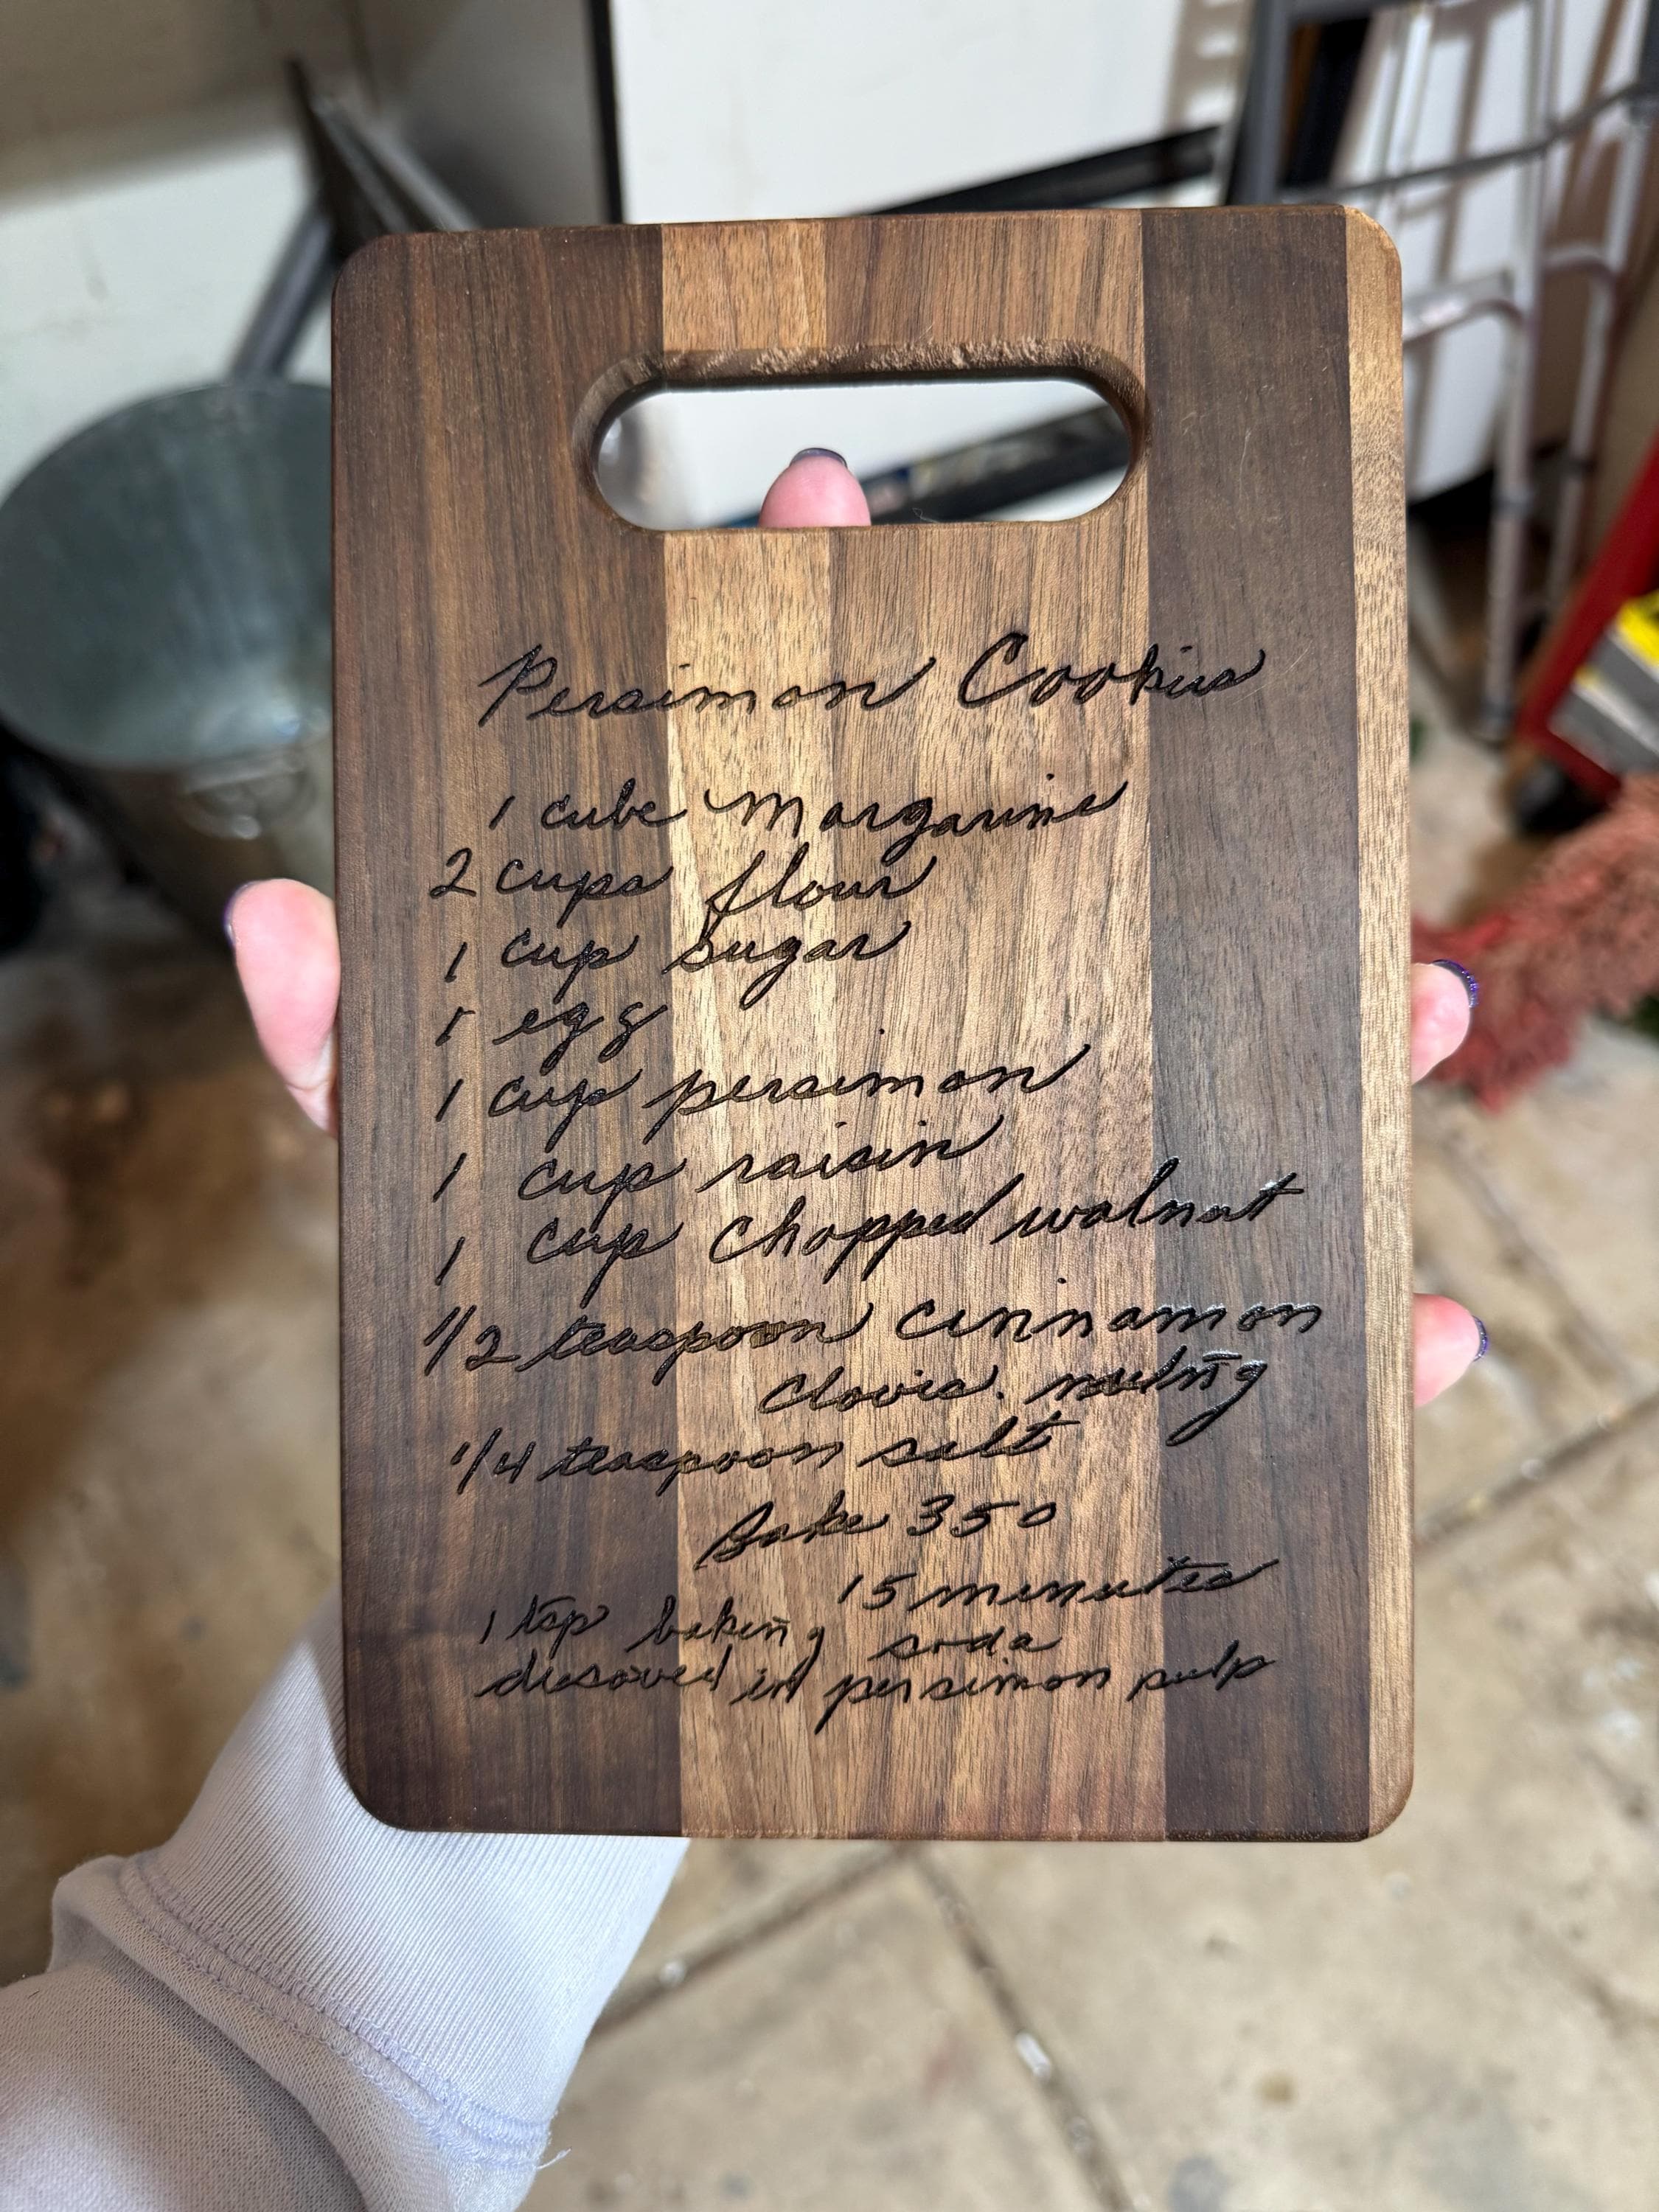 Persimon Cookies
1 cube Margarine
2 cups flour
1 cup sugar
1 egg
1 cup persimon
1 cup raisin
1 cup Chopped walnut
1/2 teaspoon cinnamon
cloves. nutmg
1/4 teaspoon salt
Bake 350
15 minutes
1 tsp baking soda
disoved in persimon pulp